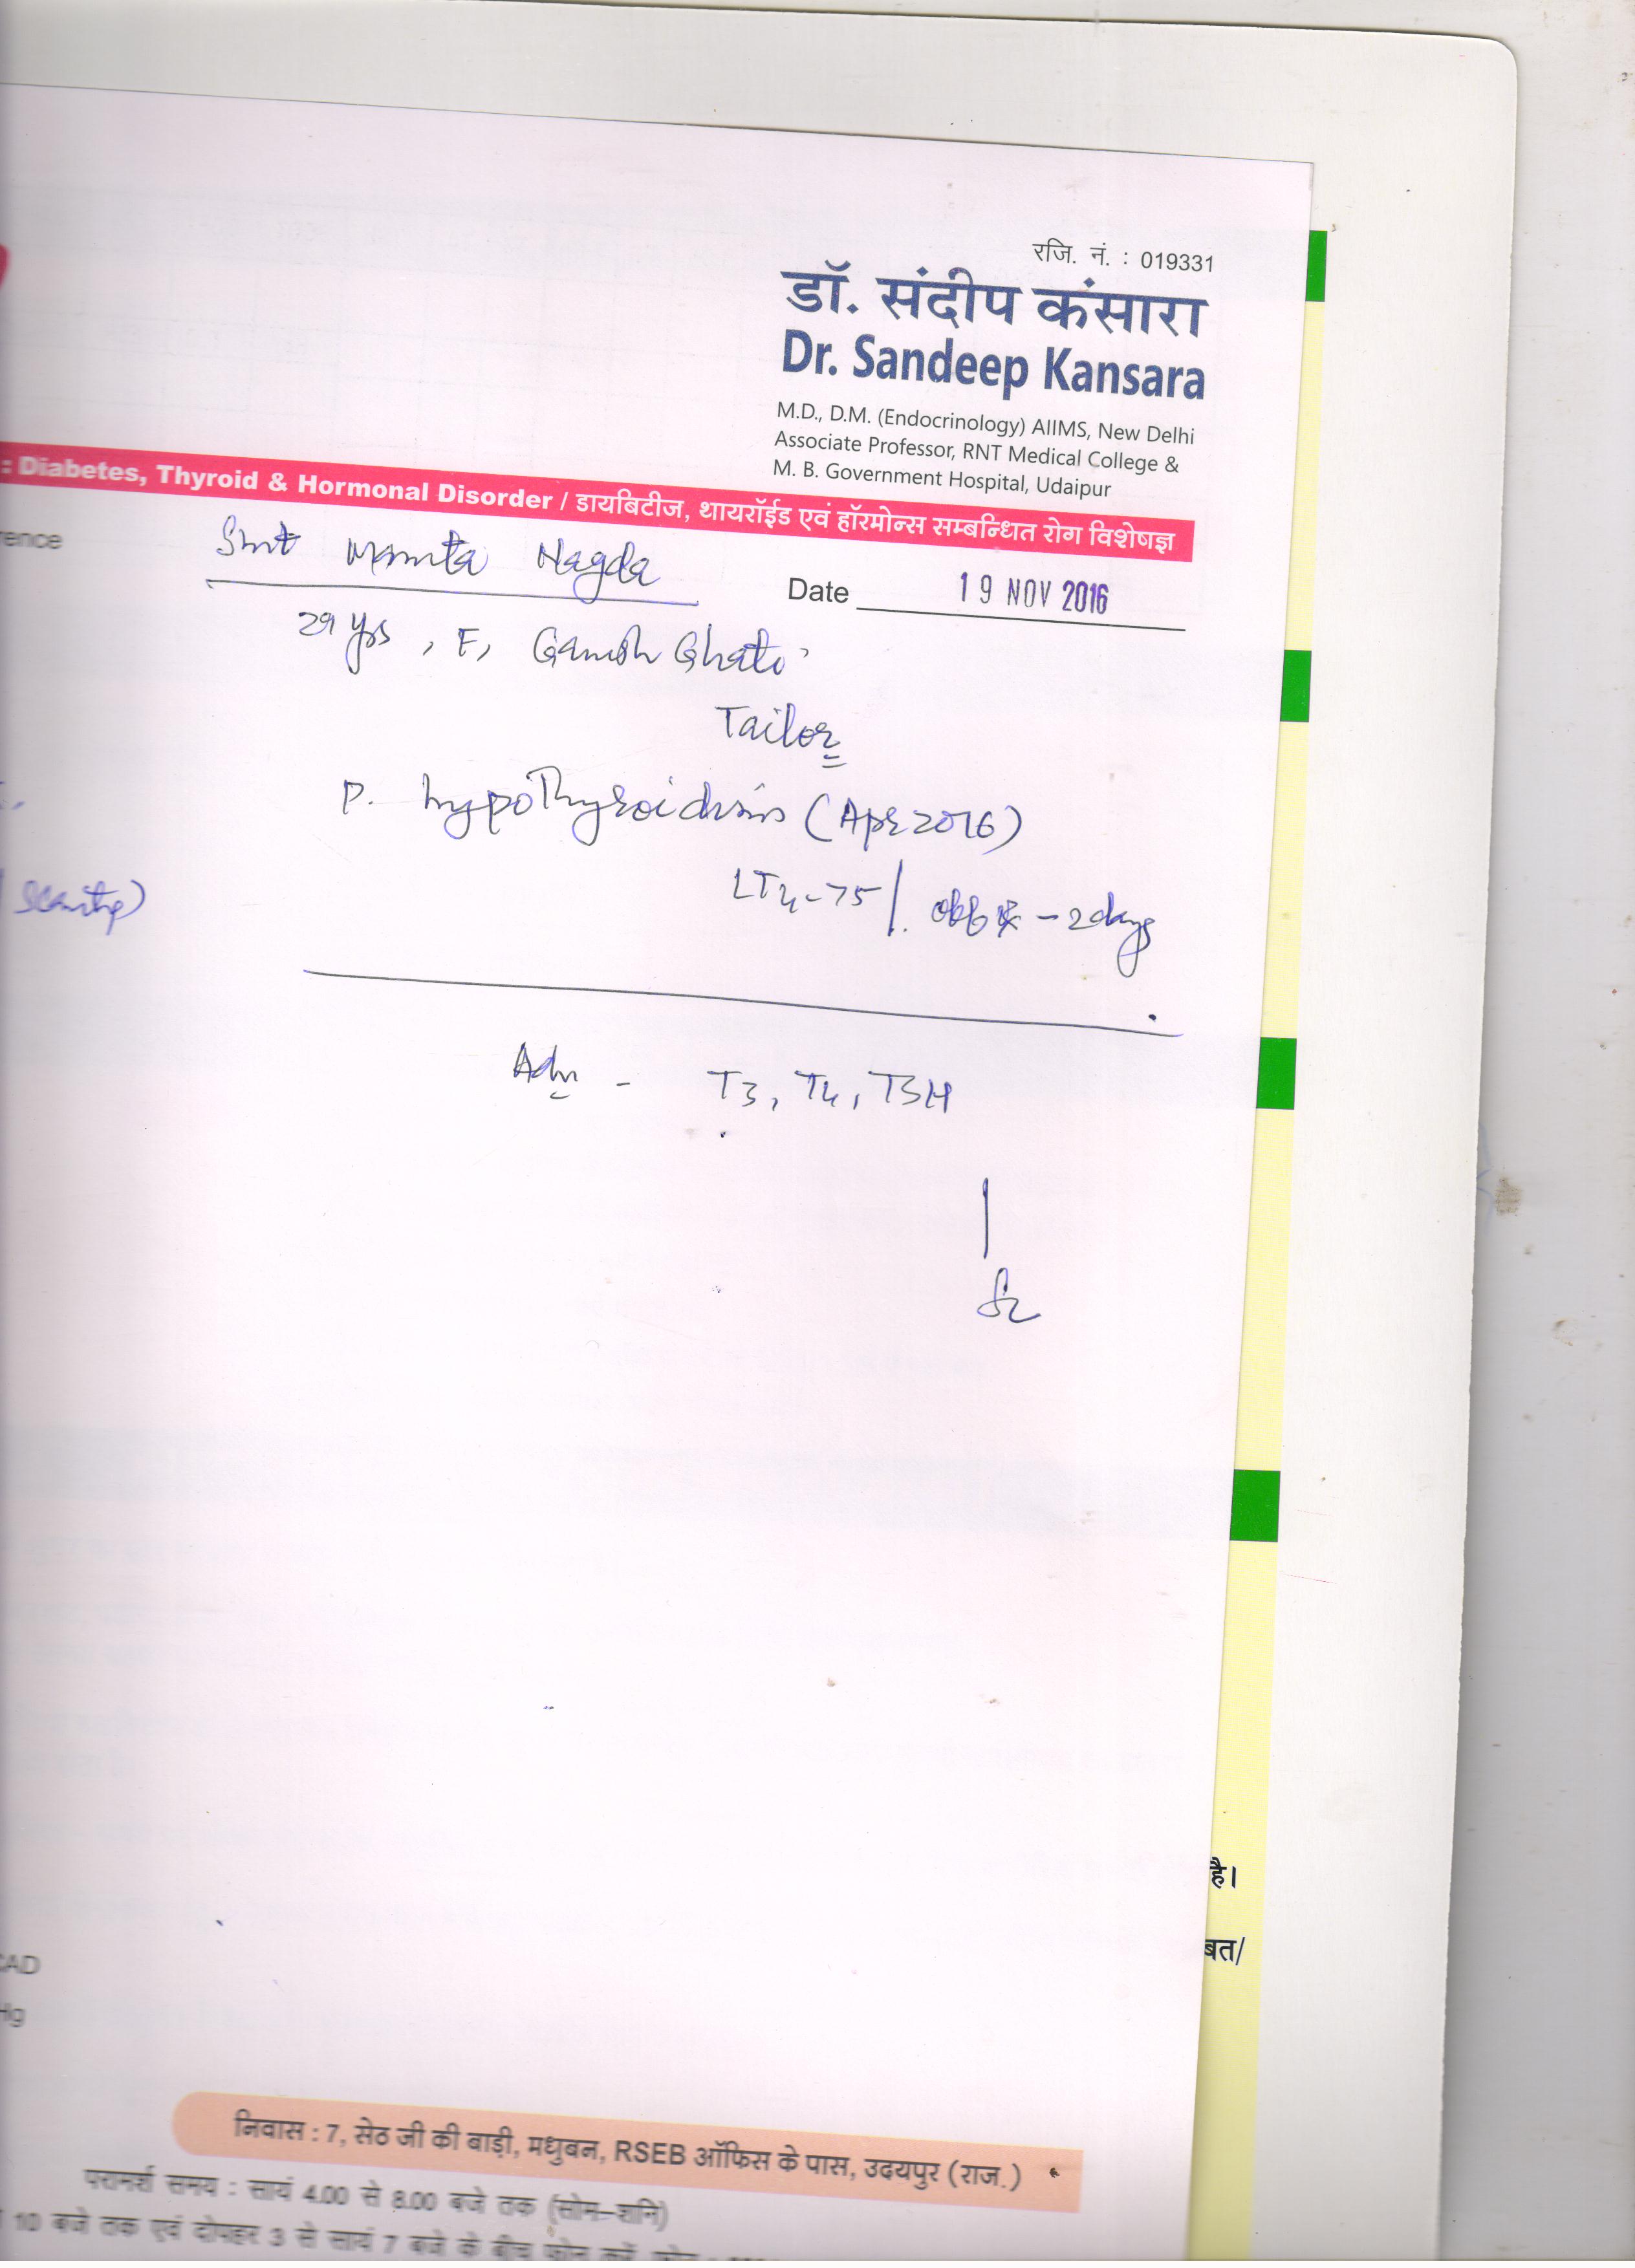 रजि. नं. : 019331
डॉ. संदीप कंसारा
Dr. Sandeep Kansara
M.D., D.M. (Endocrinology) AIIMS, New Delhi
Associate Professor, RNT Medical College &
M. B. Government Hospital, Udaipur
: Diabetes, Thyroid & Hormonal Disorder / डायबिटीज, थायरॉईड एवं हॉरमोन्स सम्बन्धित रोग विशेषज्ञ
rence
Smt Mamta Nagda
Date 19 NOV 2016
29 yrs, F, Ganesh Ghati
Tailor
P. hypothyroidism (Apr 2016)
LT4-75 /. off - 2 days
Adv - T3, T4, TSH
है।
बत/
CAD
Hg
निवास : 7, सेठ जी की बाड़ी, मधुबन, RSEB ऑफिस के पास, उदयपुर (राज.)
परामर्श समय : सायं 4.00 से 8.00 बजे तक (सोम-शनि)
10 बजे तक एवं दोपहर 3 से सायं 7 बजे के बीच फोन करें,